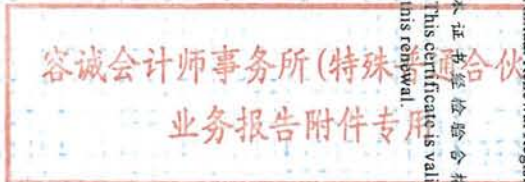 容诚会计师事务所(特殊普通合伙
业务报告附件专用
本证书经检验合格
This certificate is vali
this renewal.